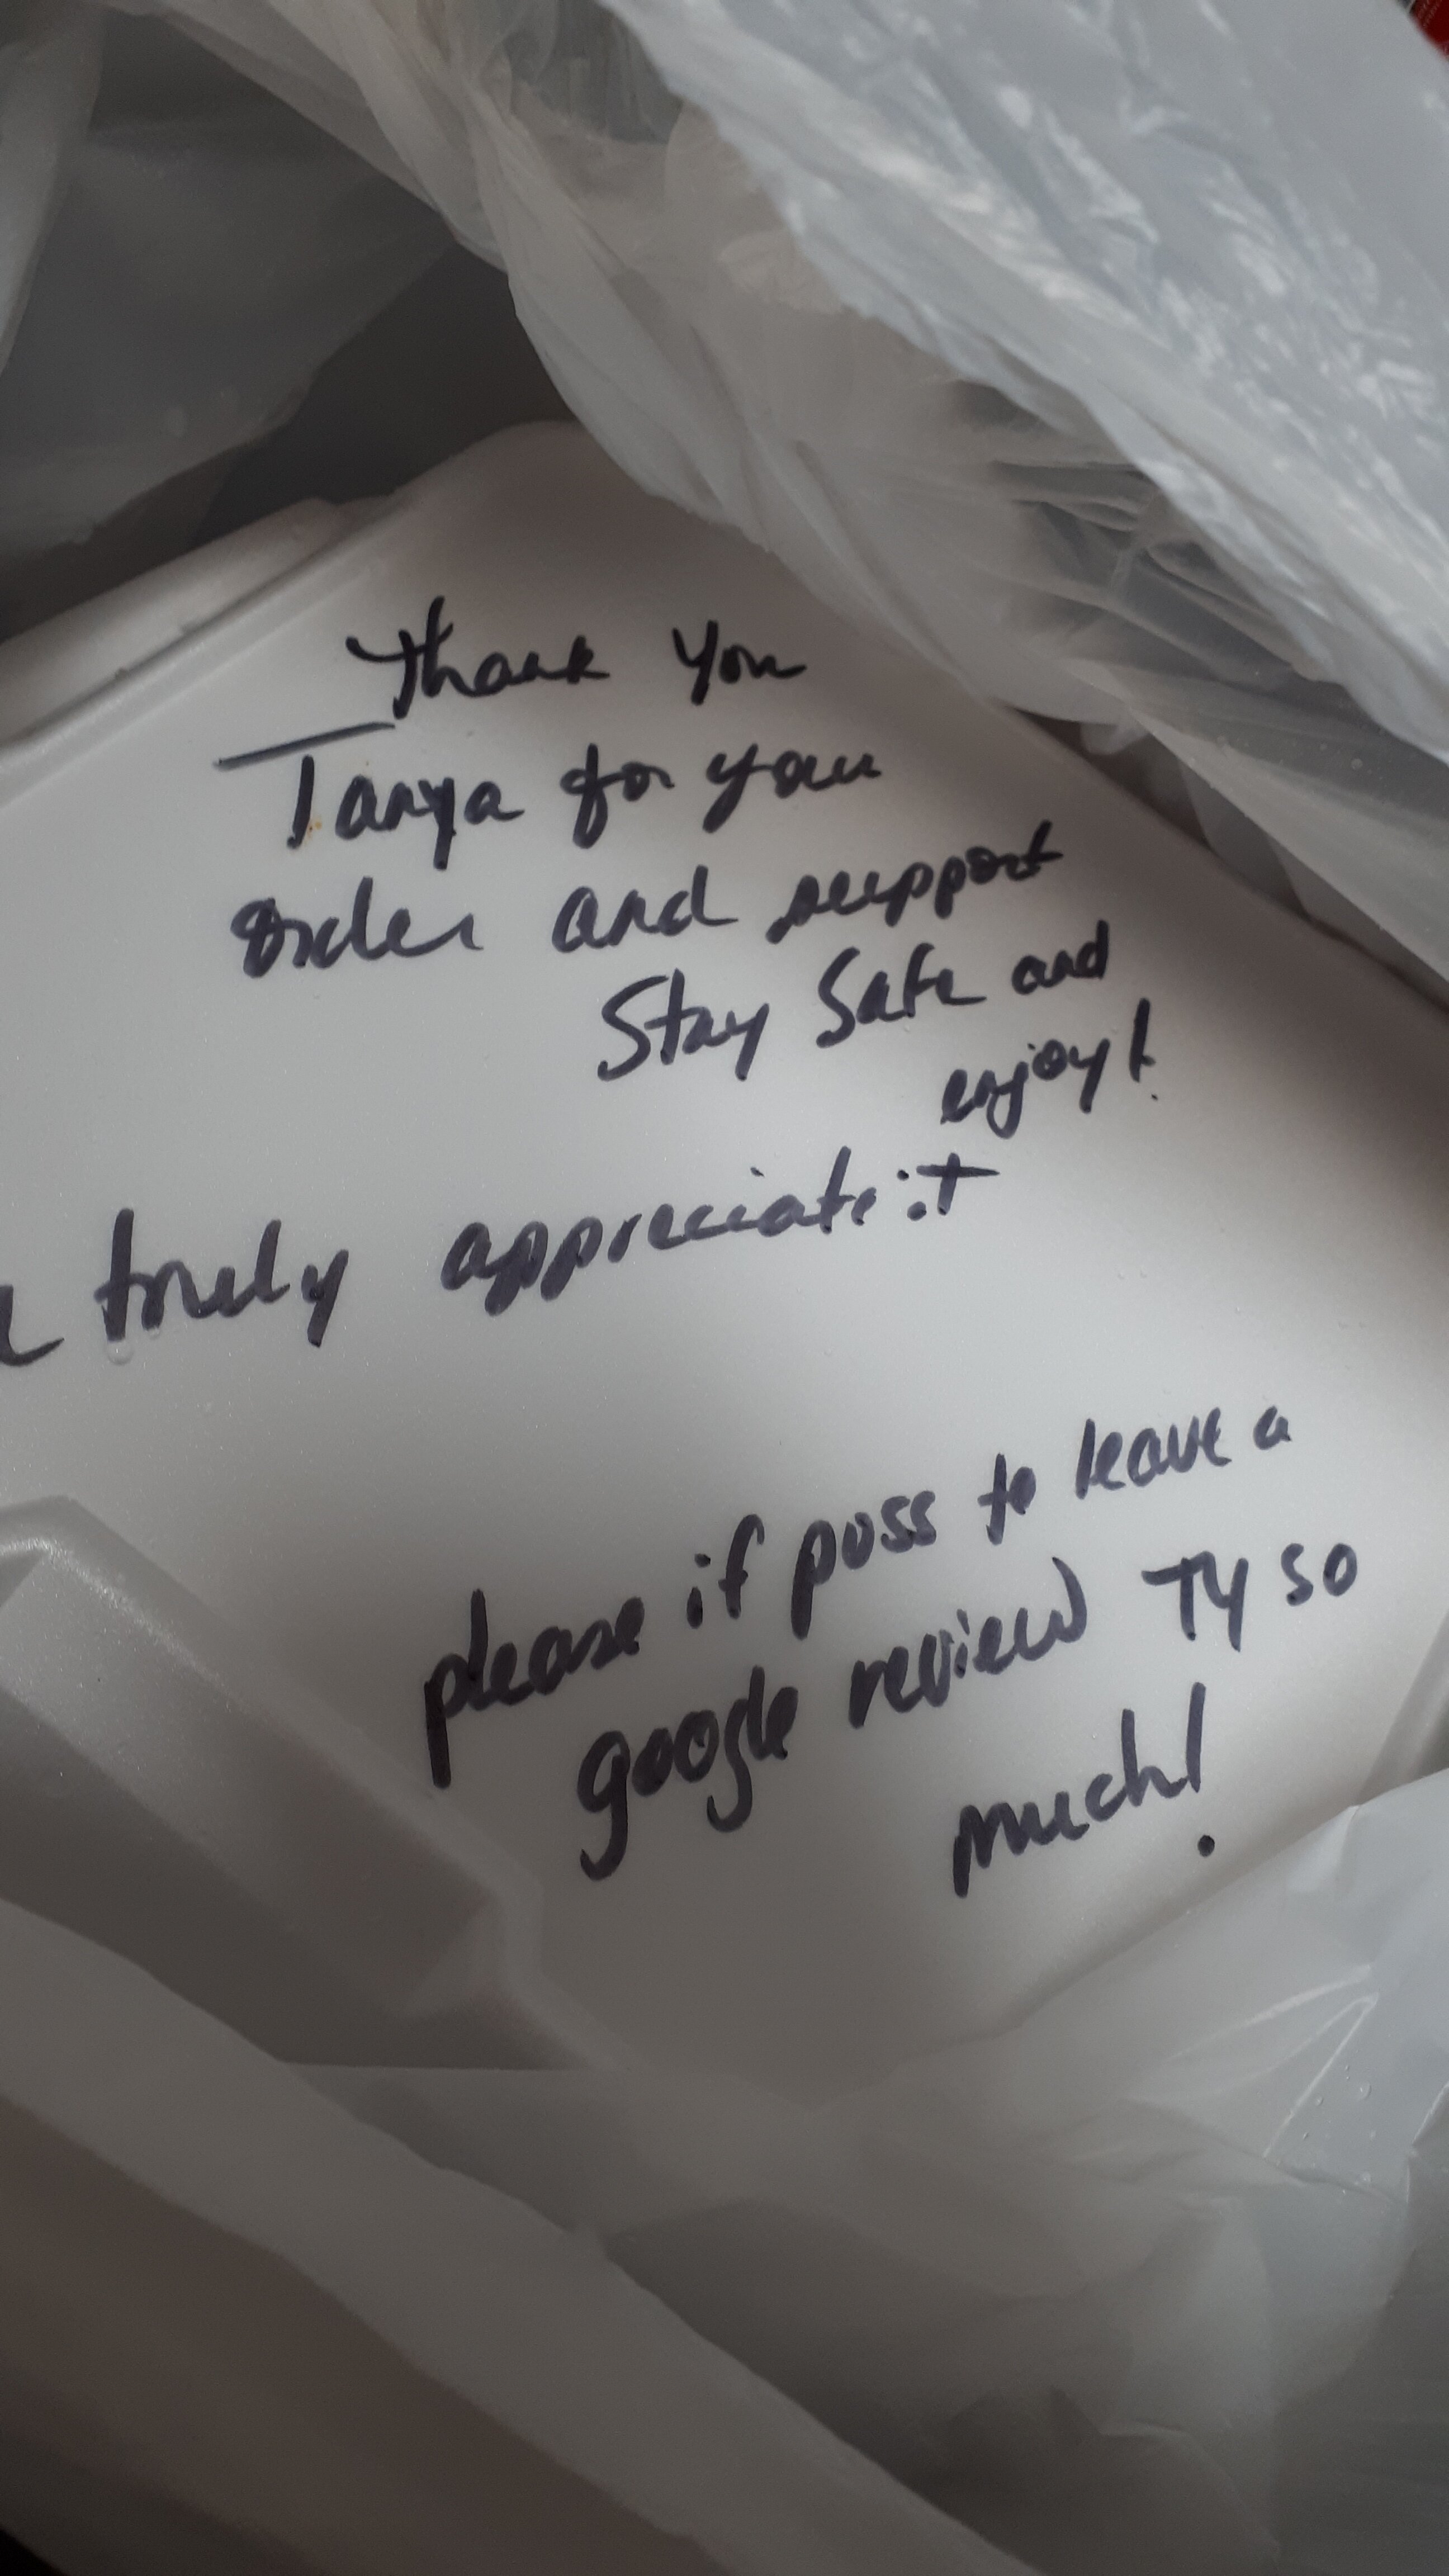 Thank You
Tanya for your
order and support
Stay Safe and
enjoy!
truely appreciate it
please if poss to leave a
google review TY so
much!